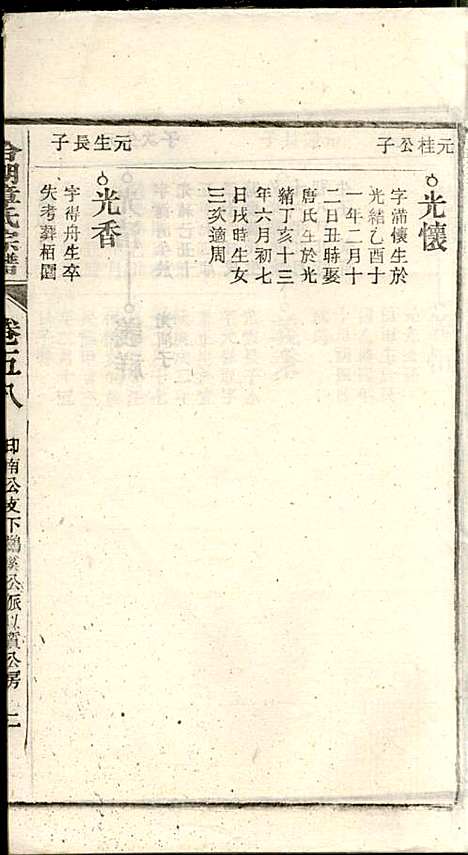 元桂公子
光懷
字滿懷生於
光緒乙酉十
一年二月十
二日丑時娶
唐氏生於光
緒丁亥十三
年六月初七
日戌時生女
三次適周
元生長子
光香
字得舟生卒
失考葬栢園
童氏宗譜
卷五八
印南公支下鶴溪公派以質公房
二